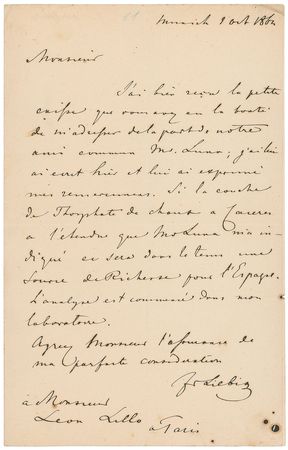 Munich 1 oct 1862
Monsieur
J'ai bien reçu la petite
caisse que vous avez eu la bonté
de m'adresser de la part de notre
ami commun M. Luna; j'ai lui
ai ecrit hier et lui ai exprimé
mes remerciemens. Si la couche
de Phosphate de chaux a Caceres
a l'étendue que Mr Luna m'a in-
diqué ce sera dans le tems une
Source de Richesse pour l'Espagne.
L'analyse est commencé dans mon
laboratoire.
Agreez Monsieur l'assurance de
ma parfaite consideration
Liebig
à Monsieur
Leon Lillo
a Paris